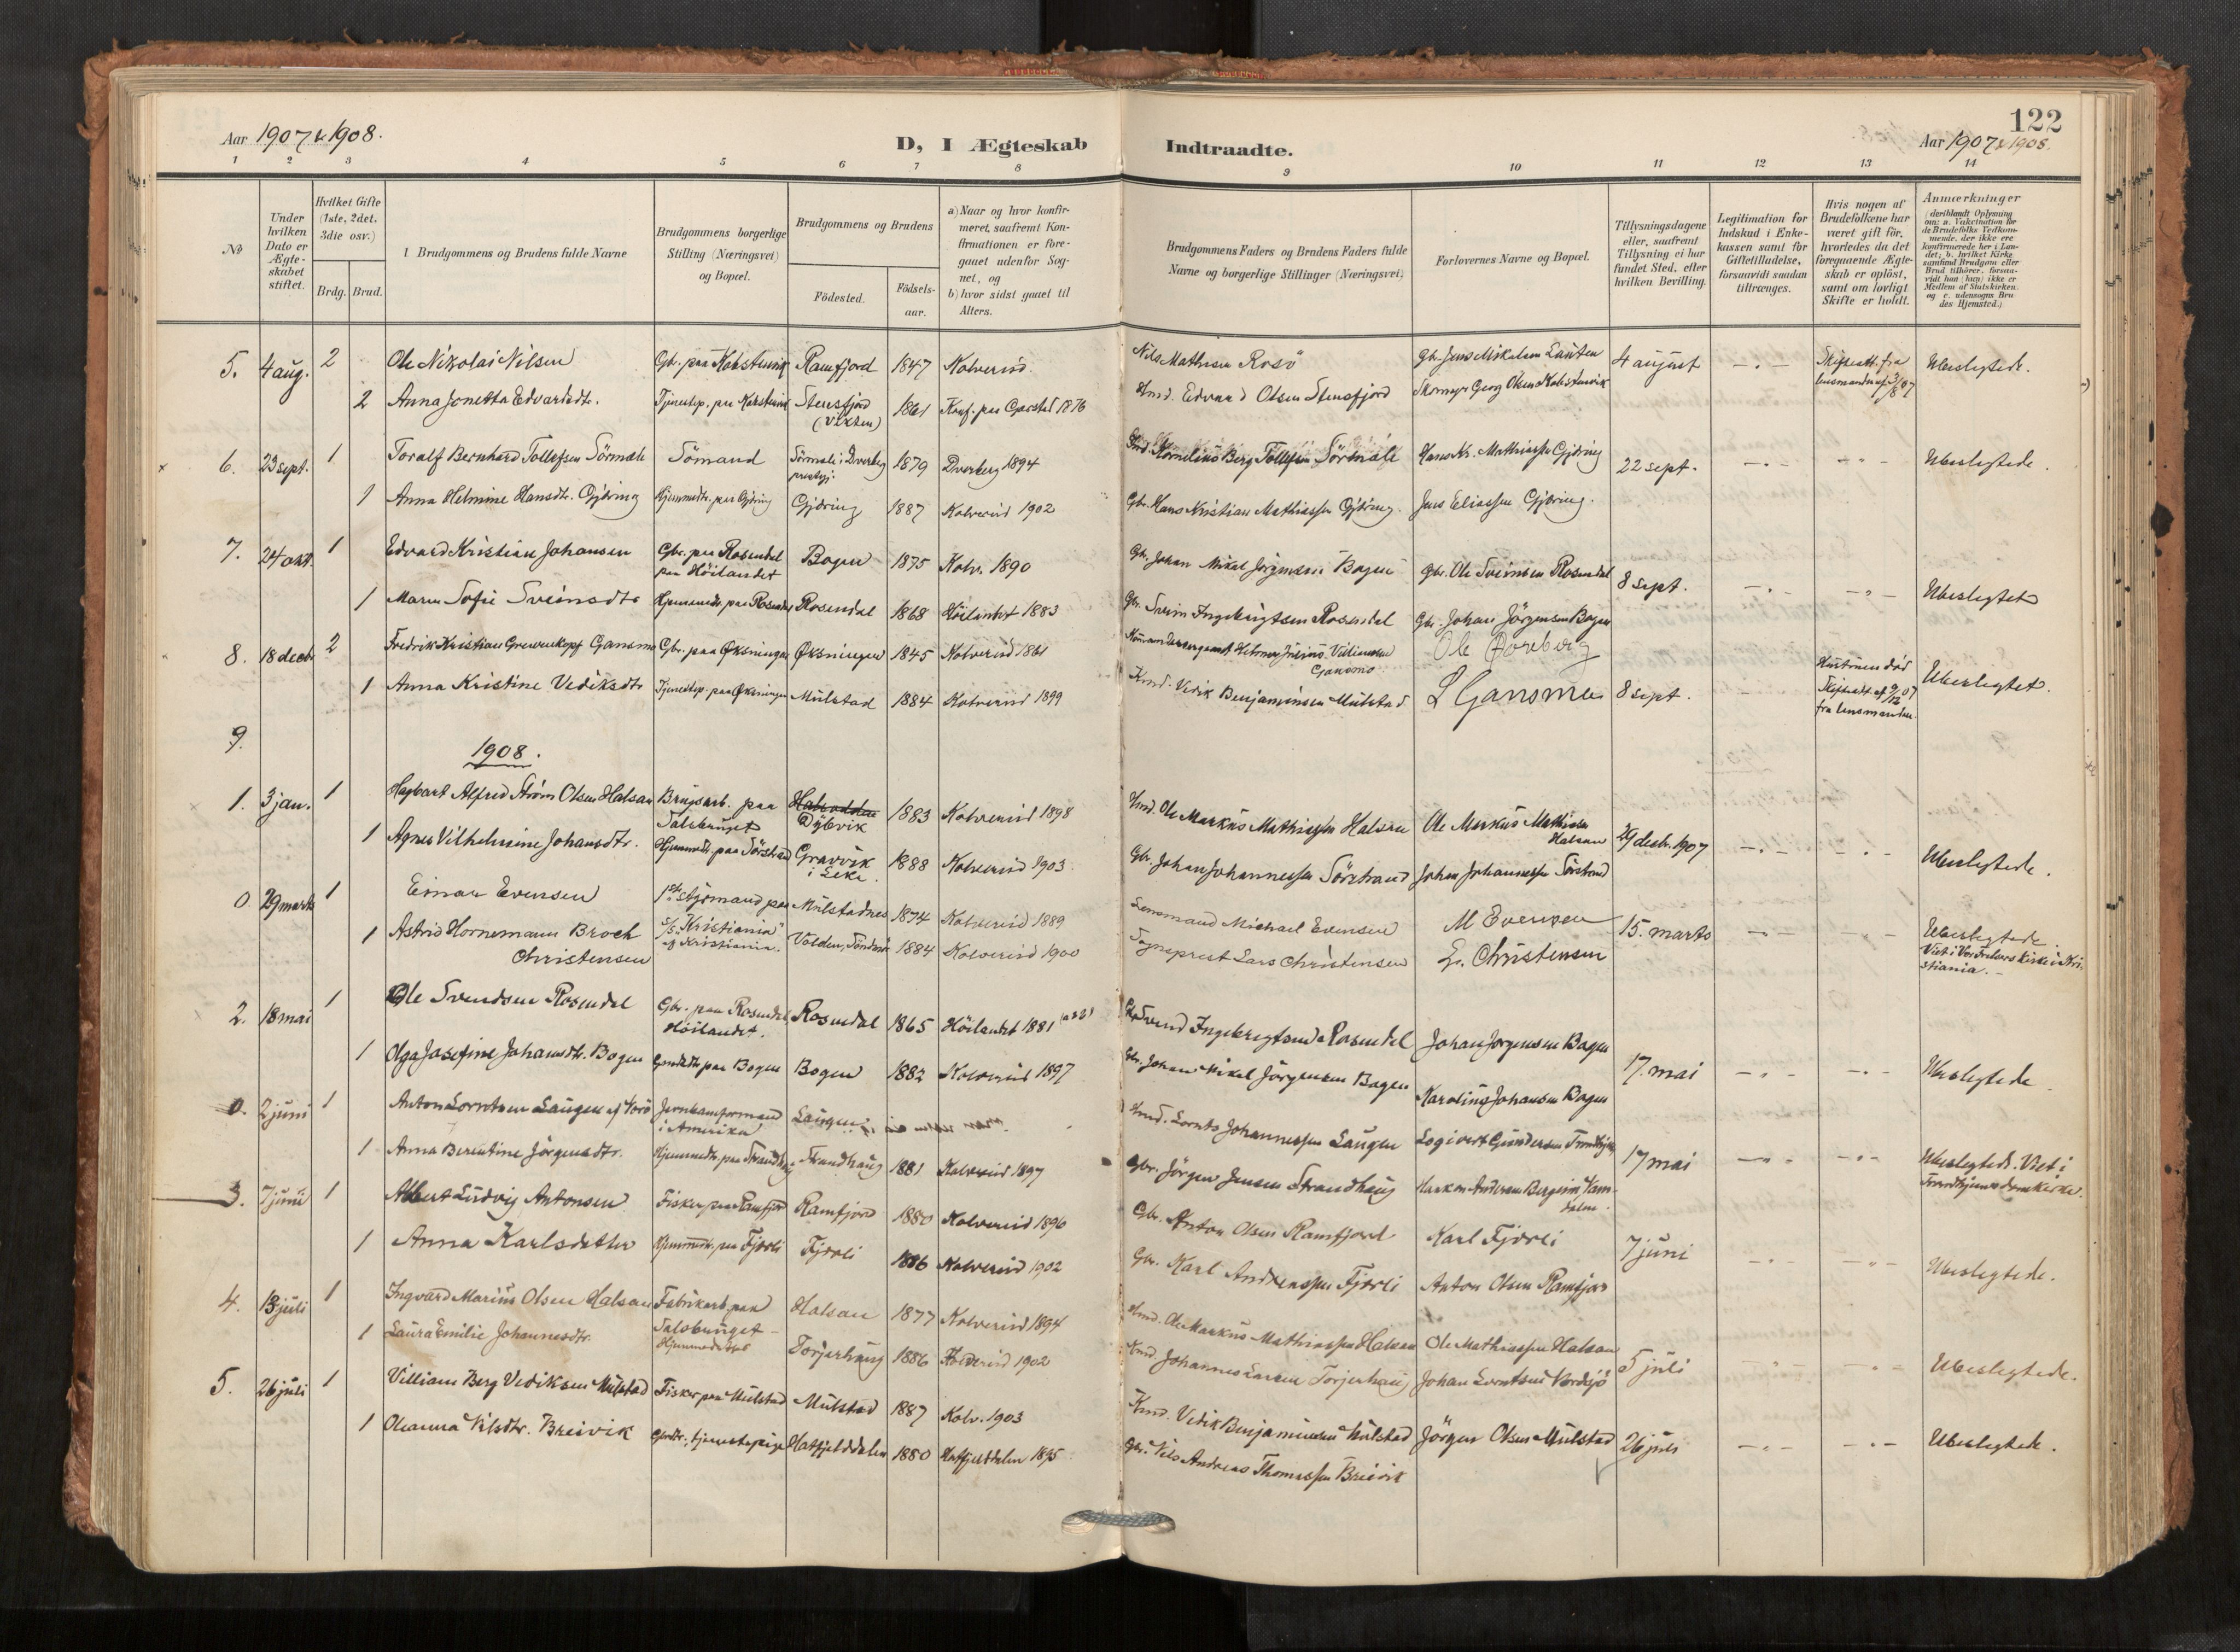 Aar 1907 & 1908.
D, I Ægteskab
Indtraadte.
122
Aar 1907 & 1908.
1 2 3 4 5 6 7 8 9 10 11 12 13 14
No
Under hvilken Dato er Ægteskabet stiftet.
Hvilket Gifte (1ste, 2det, 3die osv.)
Brdg. Brud.
Brudgommens og Brudens fulde Navne
Brudgommens borgerlige Stilling (Næringsvei) og Bopæl.
Brudgommens og Brudens
Födested.
Födsels-aar.
a) Naar og hvor konfirmeret, saafremt Konfirmationen er foregaaet udenfor Sognet, og
b) hvor sidst gaaet til Alters.
Brudgommens Faders og Brudens Faders fulde Navne og borgerlige Stillinger (Næringsvei)
Forlovernes Navne og Bopæl.
Tillysningsdagene eller, saafremt Tillysning ei har fundet Sted, efter hvilken Bevilling.
Legitimation for Indskud i Enkekassen samt for Giftetilladelse, forsaavidt saadan tiltrænges.
Hvis nogen af Brudefolkene har været gift för, hvorledes da det foregaaende Ægteskab er oplöst, samt om lovligt Skifte er holdt.
Anmærkninger
(deriblandt Oplysning om: a. Vakcination for de Brudefolks Vedkommende, der ikke ere konfirmerede her i Landet; b. hvilket Kirkesamfund Brudgom eller Brud tilhörer, forsaavidt han (hun) ikke er Medlem af Statskirken, og c. udensogns Brudes Hjemsted.)
5. 4 aug. 2 Ole Nikolai Nilsen Gbr. paa Ramfjord 1847 Kolvereid Nils Mathisen Rosö 4 august Ubeslegtede.
2 Anna Jonetta Edvardsdtr. Stensfjord (Vikten) 1861 Konf. paa 1876 Edvard Olsen Stensfjord
6. 23 sept. 1 Toralf Bernhard Tollefsen Sörmæle Sömand Sörmæle i Dverberg prestgj. 1879 Dverberg 1894 Kornelius Berg Tollefsen Sörmæle Hans Kr. Mathiassen Gjöring 22 sept. Ubeslegtede.
1 Anna Helmine Hansdtr. Gjöring Hjemmedtr. paa Gjöring Gjöring 1887 Kolvereid 1902 Gbr. Hans Kristian Mathiassen Gjöring Jens Eliassen Gjöring.
7. 24 okt. 1 Edvard Kristian Johansen Gbr. paa Rosendal paa Höilandet Bogen 1875 Kolv. 1890 Gbr. Johan Mikal Jörgensen Bogen Gbr. Ole Sveinsen Rosendal 8 sept. Ubeslegtet
1 Maren Sofie Sveinsdtr Hjemmedtr. paa Rosendal Rosendal 1868 Höilandet 1883 Gbr. Svein Ingebrigtsen Rosendal Gbr. Johan Jörgensen Bogen
8. 18 decbr 2 Fredrik Kristian Gansmo Gbr. paa Øksningen Øksningen 1845 Kolvereid 1861 Gansmo. Ole Doreberg Hustruen död
1 Anna Kristine Vediksdtr Tjenestep. paa Øksningen Mulstad 1884 Kolvereid 1899 Vedik Benjaminsen Mulstad L Gansmo 8 sept. Skifteatt. af 9/12 07 fra lensmanden. Ubeslegtet.
9.
1908.
1. 3 jan. 1 Hagbart Alfred Ström Olsen Halsan Brugsarb. paa Salsbruget Dybvik 1883 Kolvereid 1898 Ole Markus Mathiassen Halsan Ole Markus Mathiassen Halsan 29 decbr. 1907 Ubeslegtede.
1 Agnes Vilhelmine Johansdtr. Hjemmedtr. paa Sörstrand Gravvik i Leka 1888 Kolvereid 1903. Gbr. Johan Johannessen Sörstrand Johan Johannessen Sörstrand
0. 29 marts 1 Einar Evensen 1ste styrmand paa S/S "Kristiania" af Kristiania. Mulstadnes 1874 Kolvereid 1889 Lensmand Michael Evensen M Evensen 15. marts Ubeslegtede.
1 Astrid Hornemann Broch Christensen Volden, Söndmör 1884 Kolvereid 1900 Sogneprest Lars Christensen L. Christensen Viet i Vor Frelsers kirke i Kristiania.
2. 18 mai 1 Ole Svendsen Rosendal Gbr. paa Rosendal, Höilandet. Rosendal 1865 Höilandet 1881 Svend Ingebrigtsen Rosendal Johan Jörgensen Bogen 17. mai Ubeslegtede
1 Olga Josefine Johansdtr. Bogen Gaarddtr. paa Bogen Bogen 1882 Kolvereid 1897 Gbr. Johan Mikal Jörgensen Bogen Karolius Johansen Bogen
0. 2 juni 1 Anton Lorntsen Laugen Jernbaneformand i Amerika Laugen Lornts Johannessen Laugen 17 mai Ubeslegtede. Viet i Trondhjems domkirke.
1 Anna Berntine Jörgensdtr. Hjemmedtr. paa Strandhaug Strandhaug 1881 Kolvereid 1897 Gbr. Jörgen Jensen Strandhaug
3. 7 juni 1 Albert Ludvig Antonsen Fisker paa Ramfjord Ramfjord 1880 Kolvereid 1896 Gbr. Anton Olsen Ramfjord Karl Fjærli 7 juni Ubeslegtede.
1 Anna Karlsdatter Hjemmedtr. paa Fjærli Fjærli 1886 Kolvereid 1902 Gbr. Karl Andreassen Fjærli Anton Olsen Ramfjord
4. 13 juli 1 Ingvard Marius Olsen Halsan Fabrikarb. paa Salsbruget Halsan 1877 Kolvereid 1894 Ole Markus Mathiassen Halsan Ole Mathiassen Halsan 5 juli Ubeslegtede.
1 Laura Emilie Johannesdtr. Hjemmedatter Torjerhaug 1886 Kolvereid 1902 Johannes Larsen Torjerhaug Johan Lorntsen Nordsjö
5. 26 juli 1 Villiam Berg Vediksen Mulstad Fisker paa Mulstad Mulstad 1887 Kolv. 1903 Vedik Benjaminsen Mulstad Jörgen Olsen Mulstad 26 juli Ubeslegtede.
1 Oleanna Nilsdtr. Breivik Gbrdtr., tjenestepige Hatfjelddalen 1880 Hatfjelddalen 1895 Gbr. Nils Andreas Thomassen Breivik